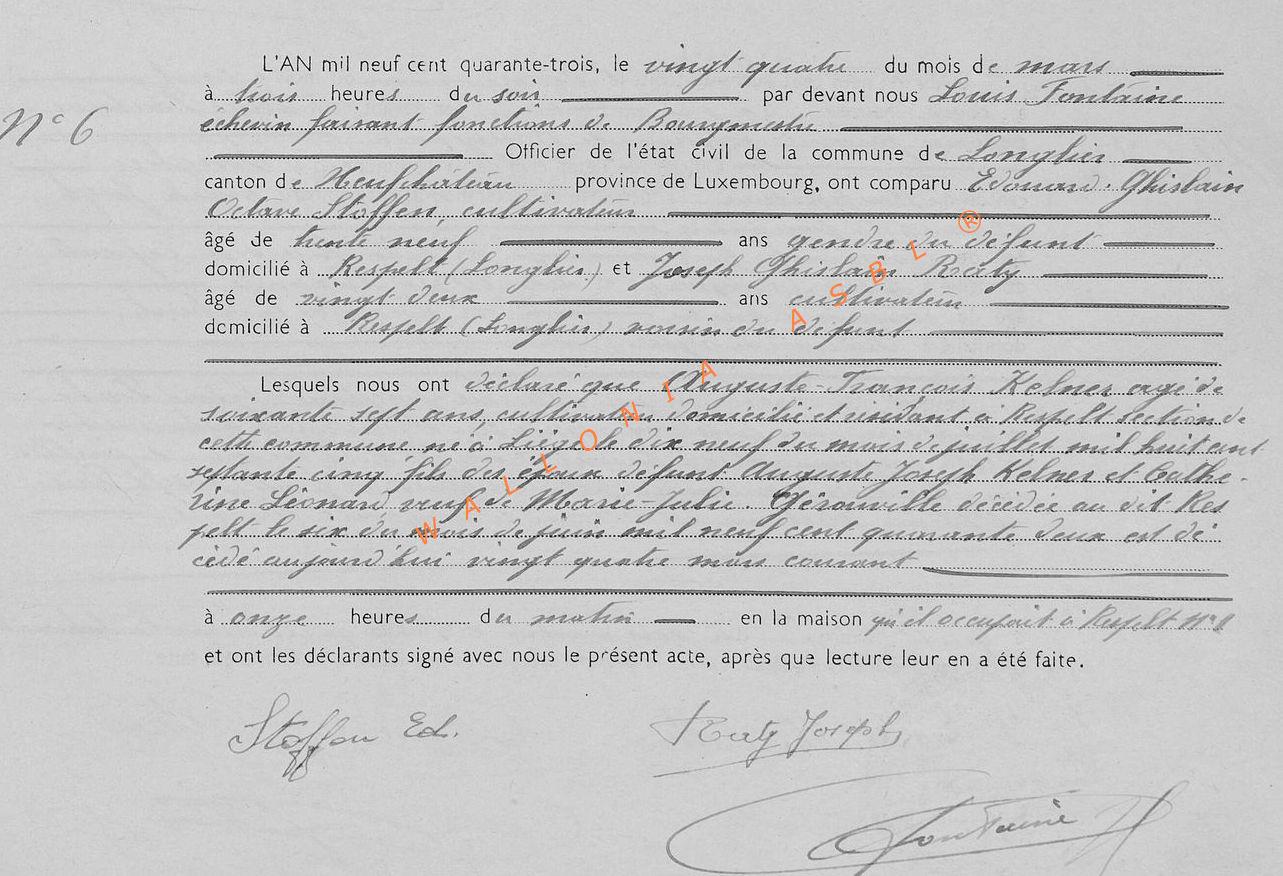 L'AN mil neuf cent quarante-trois, le vingt quatre du mois de mars
à trois heures du soir par devant nous Louis Fontaine
N° 6
échevin faisant fonctions de Bourgmestre
Officier de l'état civil de la commune de Longlier
canton de Neufchâteau province de Luxembourg, ont comparu Edouard-Ghislain
Octave Stoffen, cultivateur
âgé de trente neuf ans gendre du défunt
domicilié à Respelt (Longlier) et Joseph Ghislain Raty
âgé de vingt deux ans cultivateur
domicilié à Respelt (Longlier) voisin du défunt
Lesquels nous ont déclaré que Auguste-François Kelner agé de
soixante sept ans, cultivateur domicilié et résidant à Respelt section de
cette commune né à Liège le dix neuf du mois de juillet mil huit cent
septante cinq fils des époux défunt Auguste Joseph Kelner et Cathe-
rine Léonard, veuf de Marie-Julie Gérouville décédée au dit Res
pelt le six du mois de juin mil neuf cent quarante deux est dé
cédé aujourd'hui vingt quatre mars courant
à onze heures du matin en la maison qu'il occupait à Respelt N°
et ont les déclarants signé avec nous le présent acte, après que lecture leur en a été faite.
Stoffen Ed. Raty Joseph
Fontaine
WALLONIA ASBL ®